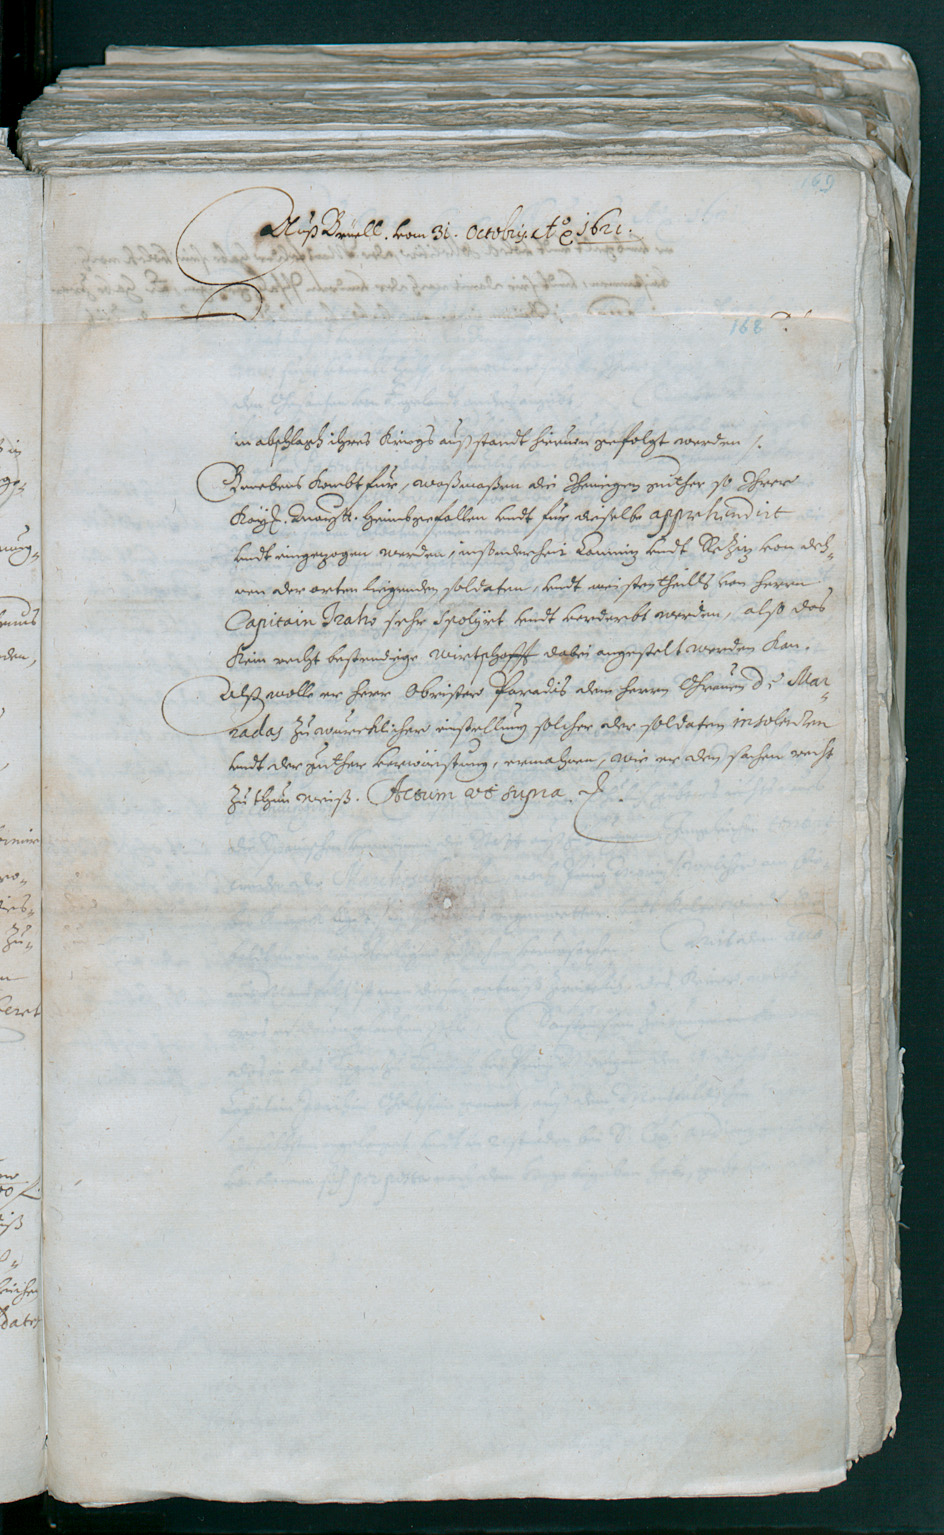 169
Auß Brüell. vom 31. Octobris. Ao 1621.
168
in abschlagh ihres Kriegs außstandt hieruon gefolgt werden /.
Benebens kombt für, waßmaßen die Jhenigen güther so Ihrer
Kay. Mayst. heimbgefallen vndt für dieselbe apprehendirt
vndt eingezogen worden, inßonderheit vndt von deß-
ren der orten liegenden soldaten, vndt meistentheilß von herrn
Capitain sehr Spolyrt vndt verderbt worden, alß das
kein recht bestendige wirtschafft dabei angestelt werden kan.
Alß wolle er herr Obrister Paradis dem herrn de Mar-
radas zu würcklicher einstellung solcher der soldaten insolentien
vndt der güther verwüestung, ermahnen, wie er den sachen recht
zu thun weiß. Actum ut supra.